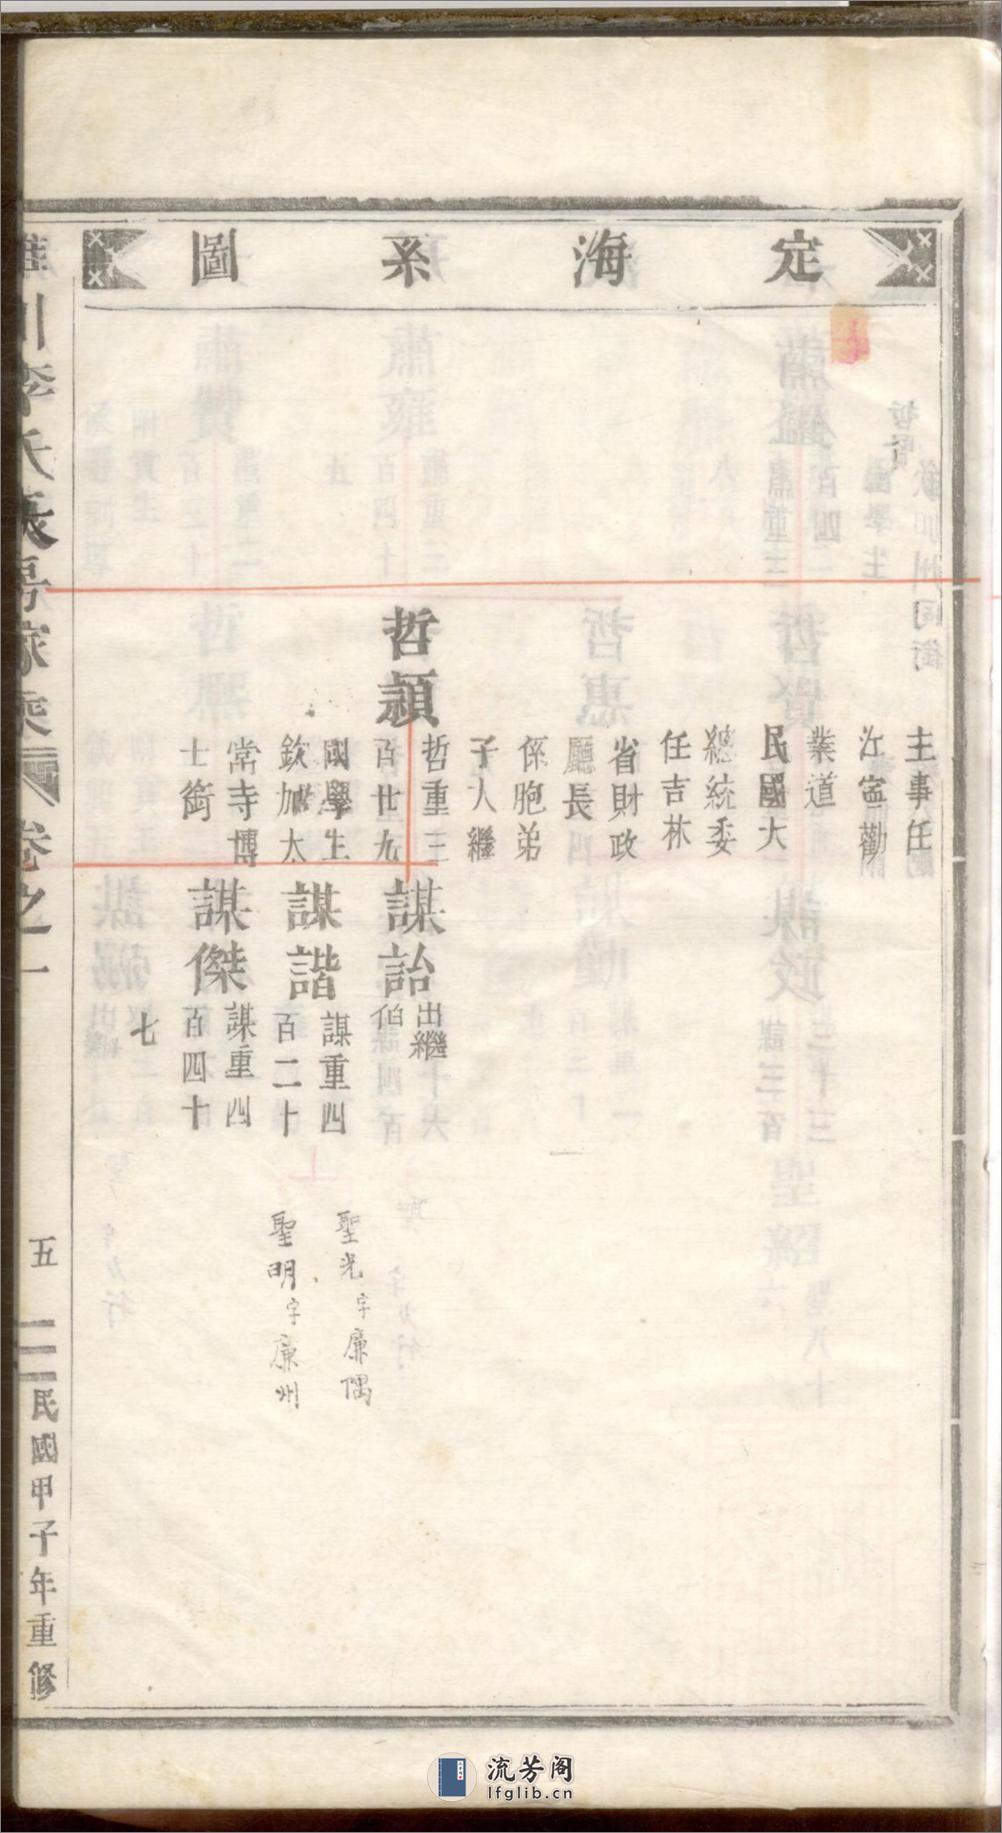 定海系圖
主事任
江寧勸
業道
民國大
總統委
任吉林
省財政
廳長
係胞弟
子人繼
哲穎
哲重三
百廿九
國學生
欽加太
常寺博
士銜
謀詒
出繼
伯
謀諧
謀重四
百二十
謀傑
謀重四
百四十
七
聖光字廉隅
聖明字廉州
川李氏家乘
卷之一
五
民國甲子年重修
流芳阁
lfglib.cn